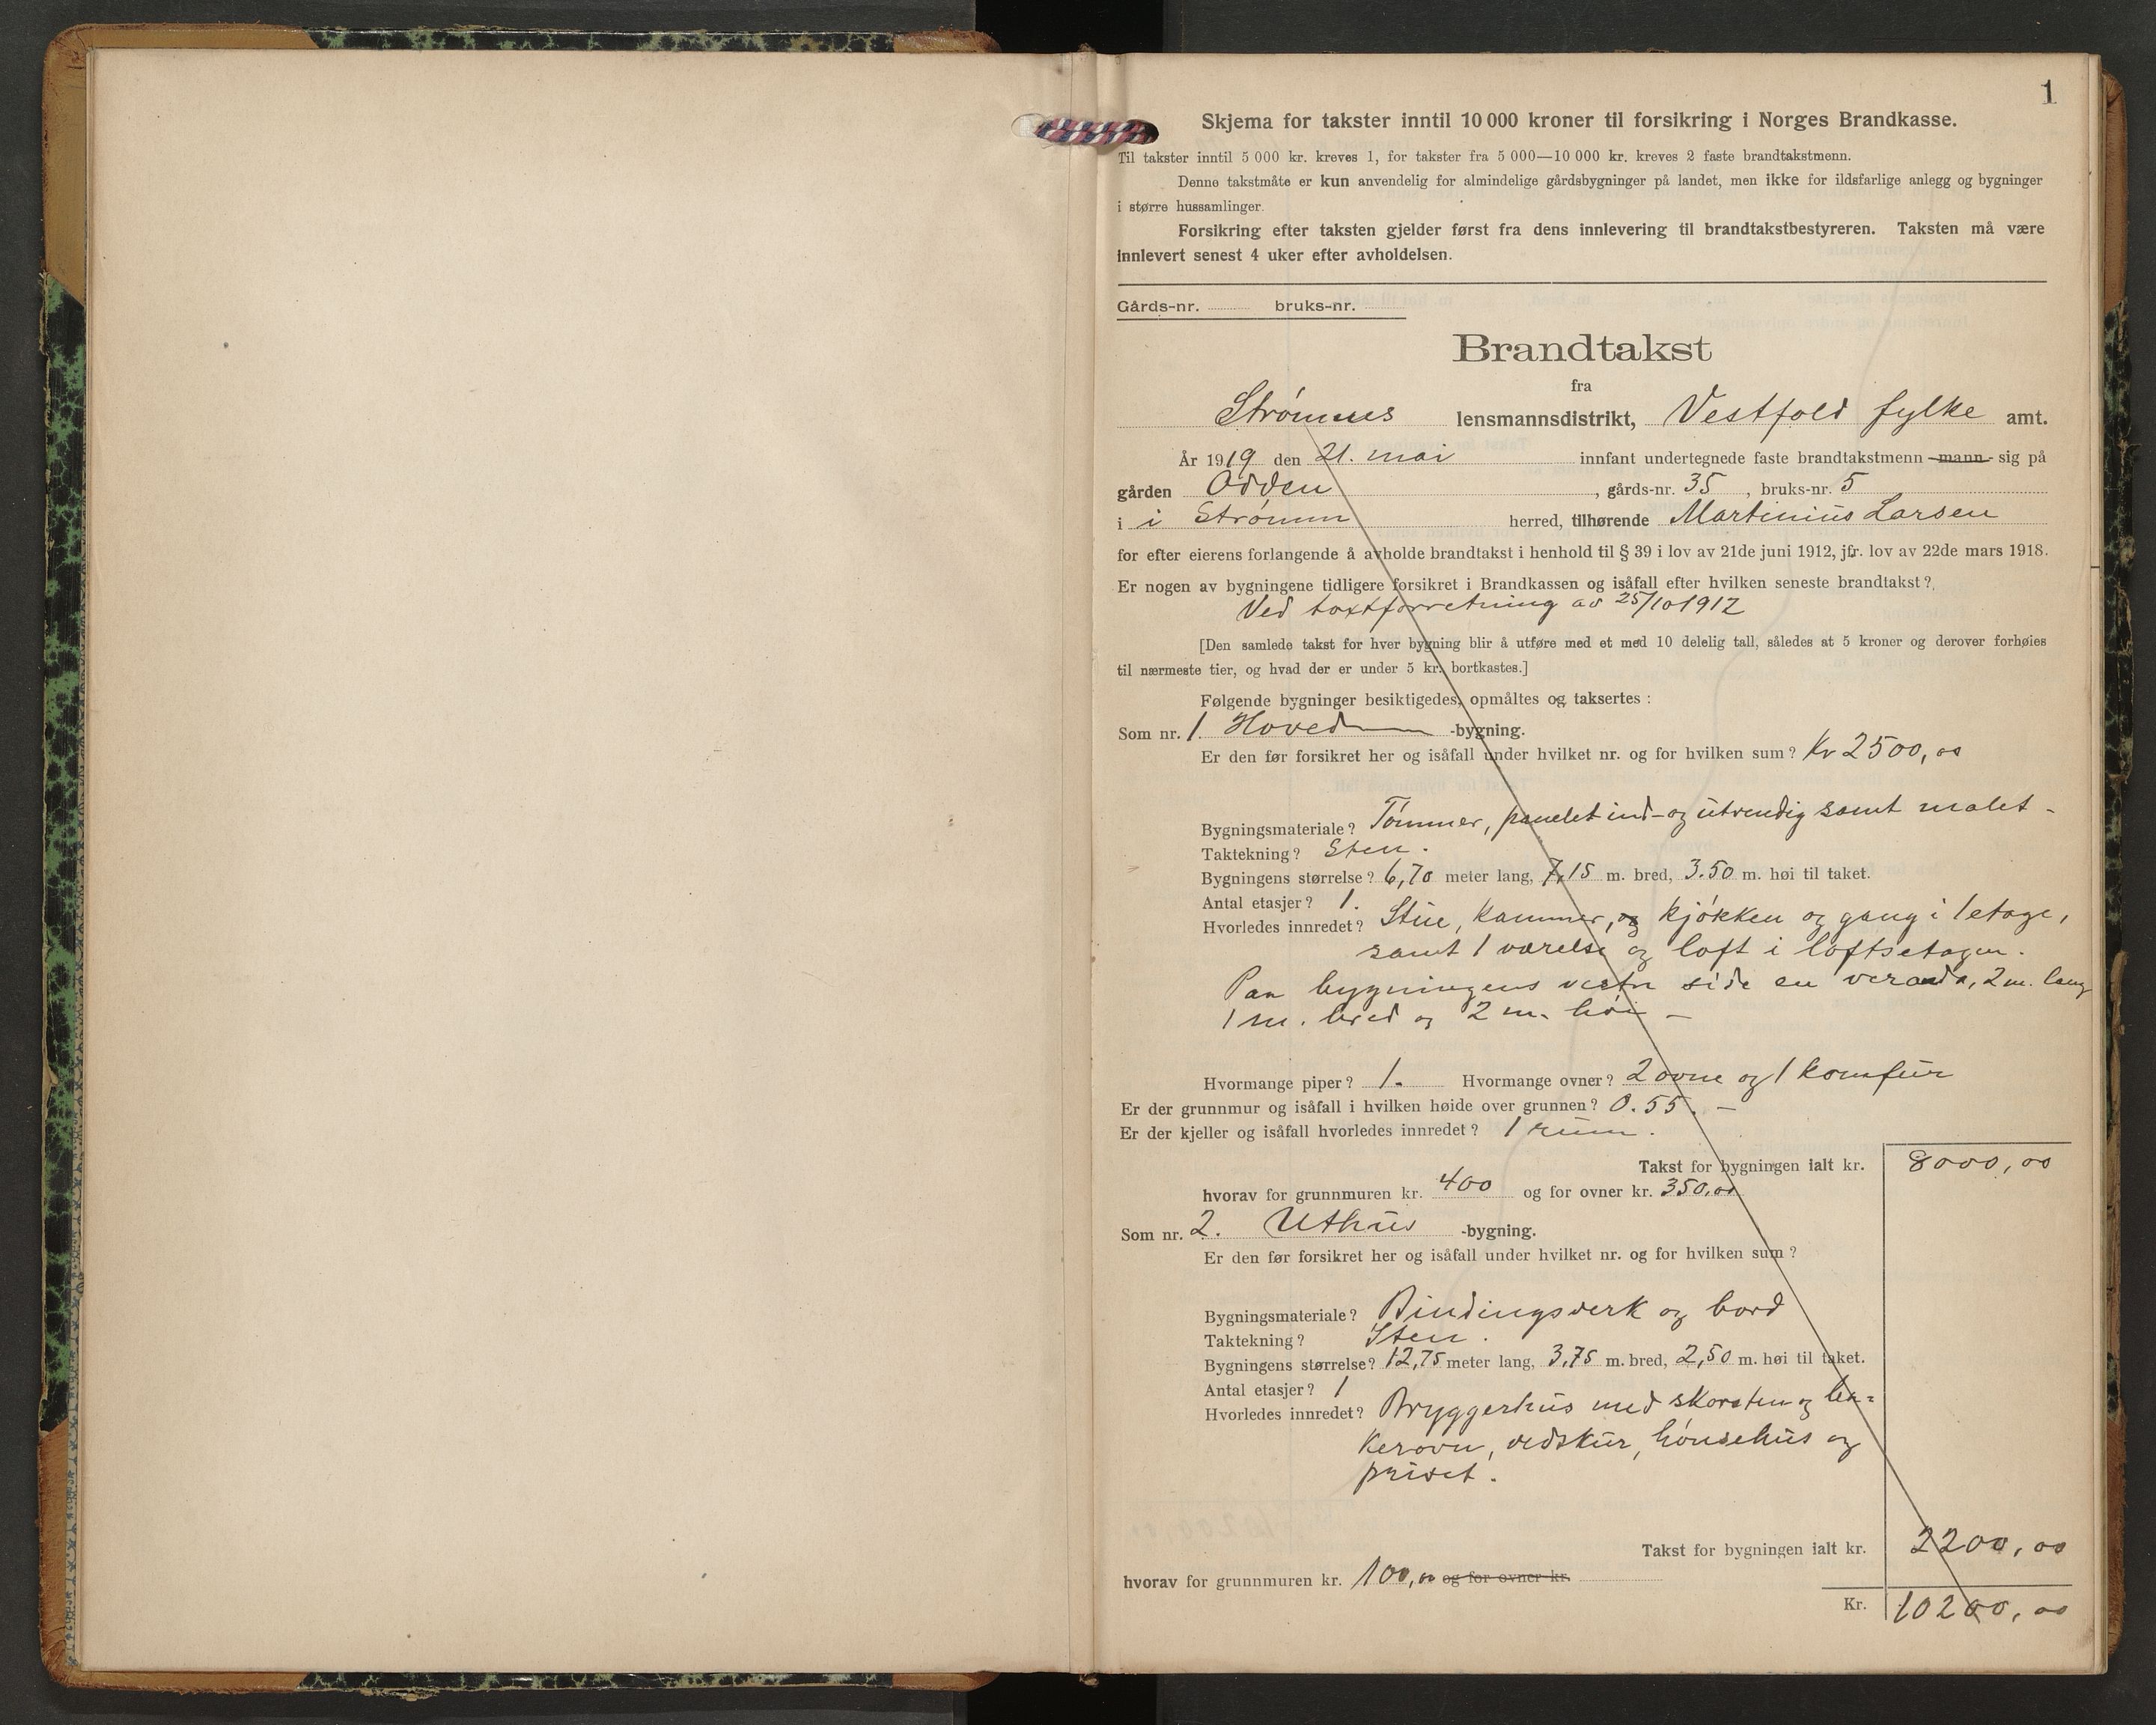 1
Skjema for takster inntil 10 000 kroner til forsikring i Norges Brandkasse.
Til takster inntil 5 000 kr. kreves 1, for takster fra 5 000—10 000 kr. kreves 2 faste brandtakstmenn.
Denne takstmåte er kun anvendelig for almindelige gårdsbygninger på landet, men ikke for ildsfarlige anlegg og bygninger
i større hussamlinger.
Forsikring efter taksten gjelder først fra dens innlevering til brandtakstbestyreren. Taksten må være
innlevert senest 4 uker efter avholdelsen.
Gårds-nr. bruks-nr.
Brandtakst
fra
Strømmes lensmannsdistrikt, Vestfold fylke amt.
År 1919 den 21. mai innfant undertegnede faste brandtakstmenn -mann- sig på
gården Odden, gårds-nr. 35, bruks-nr. 5
i i Strømm herred, tilhørende Martinius Larsen
for efter eierens forlangende å avholde brandtakst i henhold til § 39 i lov av 21de juni 1912, jfr. lov av 22de mars 1918.
Er nogen av bygningene tidligere forsikret i Brandkassen og isåfall efter hvilken seneste brandtakst?
Ved taxtforretning av 25/10 1912
[Den samlede takst for hver bygning blir å utføre med et med 10 delelig tall, således at 5 kroner og derover forhøies
til nærmeste tier, og hvad der er under 5 kr. bortkastes.]
Følgende bygninger besiktigedes, opmåltes og taksertes :
Som nr. 1. Hoved -bygning.
Er den før forsikret her og isåfall under hvilket nr. og for hvilken sum? Kr 2500,00
Bygningsmateriale? Tömmer, panelet ind- og utvendig samt malet -
Taktekning? Sten.
Bygningens størrelse? 6,70 meter lang, 7,15 m. bred, 3.50 m. høi til taket.
Antal etasjer? 1.
Hvorledes innredet? Stue, kammer, og kjökken og gang i 1 etage,
samt 1 værelse og loft i loftsetagen.
Paa bygningens vestre side en veranda, 2 m. lang
1 m. bred og 2 m. höi -
Hvormange piper? 1. Hvormange ovner? 2 ovne og 1 komfur
Er der grunnmur og isåfall i hvilken høide over grunnen? 0.55. -
Er der kjeller og isåfall hvorledes innredet? 1 rum.
Takst for bygningen ialt kr. 8000,00
hvorav for grunnmuren kr. 400 og for ovner kr. 350,00
Som nr. 2. Uthus -bygning.
Er den før forsikret her og isåfall under hvilket nr. og for hvilken sum?
Bygningsmateriale? Bindingsverk og bord
Taktekning? Sten.
Bygningens størrelse? 12,75 meter lang, 3,75 m. bred, 2,50 m. høi til taket.
Antal etasjer? 1
Hvorledes innredet? Bryggerhus med skorsten og ba=
kerovn, vedskur, hönsehus og
privet.
Takst for bygningen ialt kr. 2200,00
hvorav for grunnmuren kr. 100,00 og for ovner kr.
Kr. 10200,00